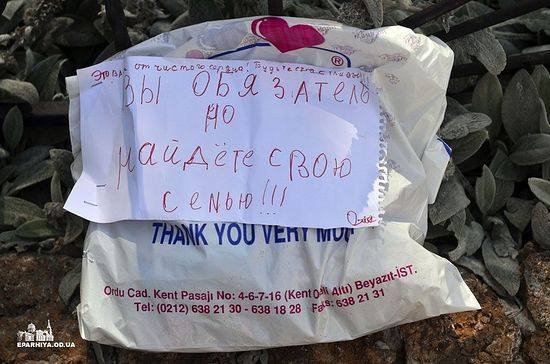 ®
Это Вам от чистого сердца! Будьте счастливы!
ВЫ ОБЯЗАТЕЛЬ
НО
НАЙДЁТЕ СВОЮ
СЕМЬЮ!!!
THANK YOU VERY MUC
Ordu Cad. Kent Pasajı No: 4-6-7-16 (Kent Altı) Beyazıt-İST.
Tel: (0212) 638 21 30 - 638 18 28 Faks: 638 21 31
EPARHIYA.OD.UA